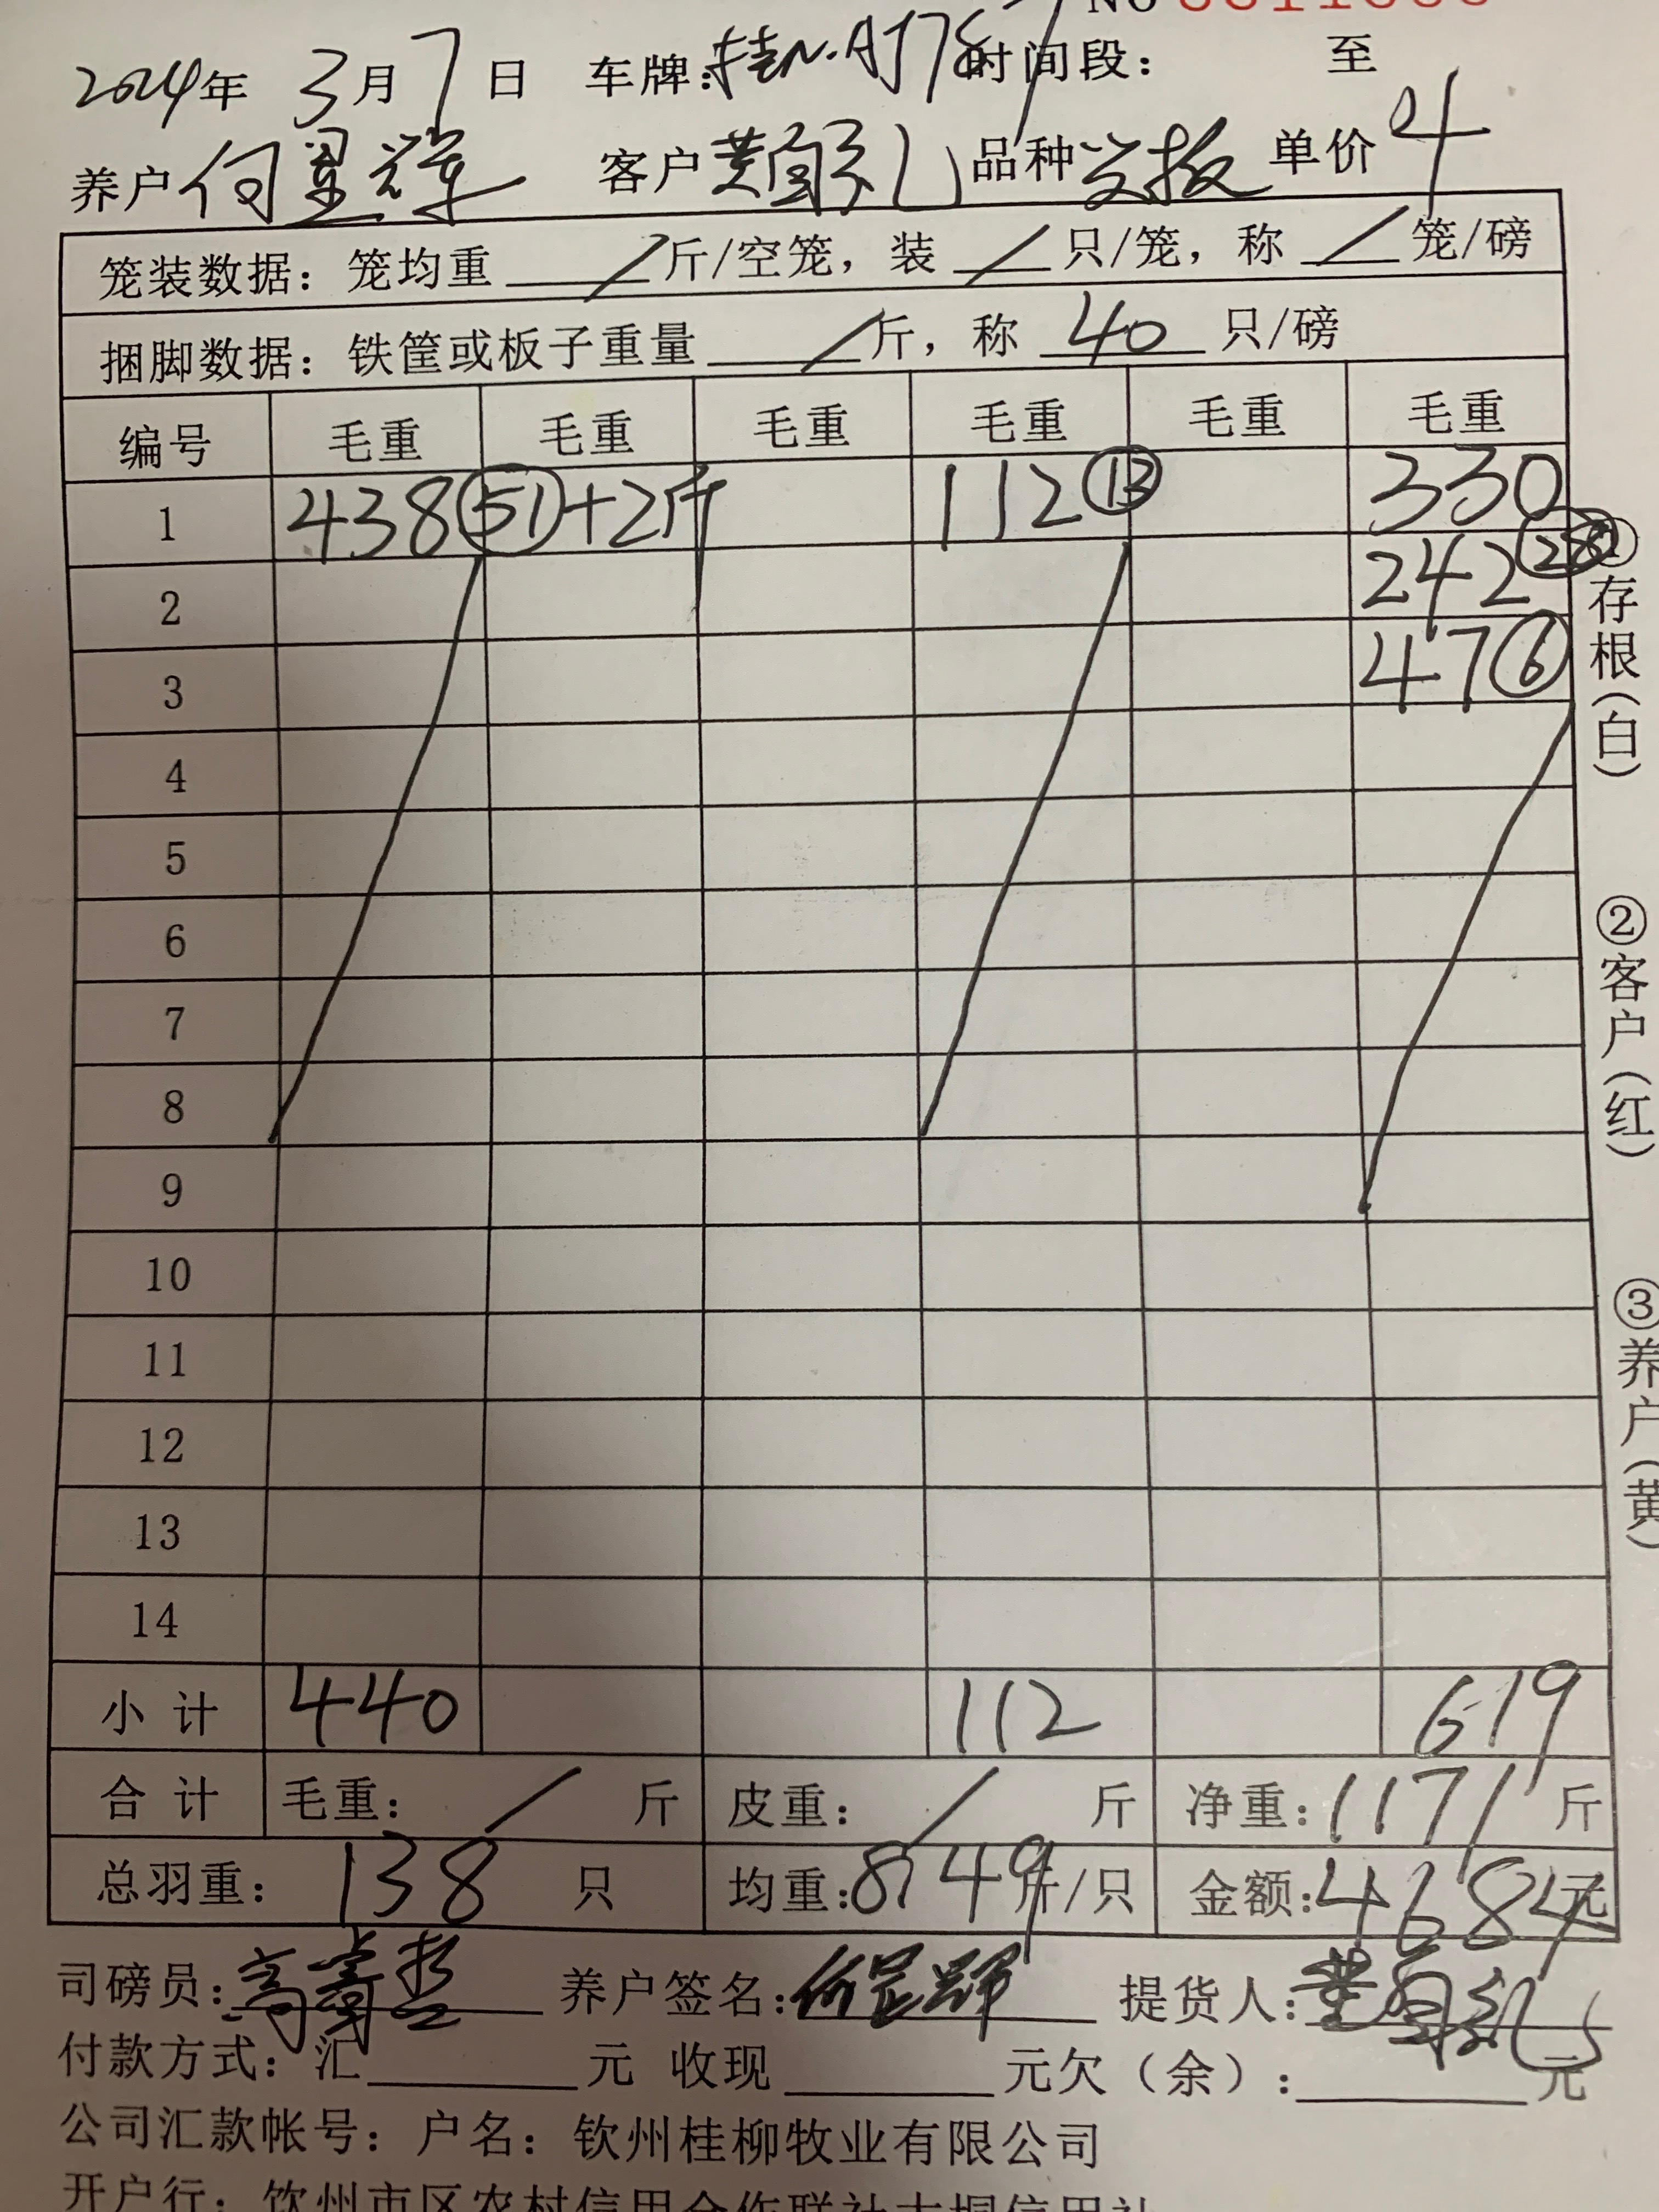 NO
2024年 3月7日 车牌:桂N.AJ78 时间段: 至
养户 何昱辉 客户 黄 品种 公报 单价 4
笼装数据: 笼均重 / 斤/空笼, 装 / 只/笼, 称 / 笼/磅
捆脚数据: 铁筐或板子重量 / 斤, 称 40 只/磅
编号 毛重 毛重 毛重 毛重 毛重 毛重
1 438 51 +2斤 112 13 330
2 242 28
3 47 6
4
5
6
7
8
9
10
11
12
13
14
小计 440 112 619
合计 毛重: / 斤 皮重: / 斤 净重: 1171 斤
总羽重: 138 只 均重: 8.49 斤/只 金额: 4684 元
司磅员: 高 养户签名: 提货人: 黄
付款方式: 汇 元 收现 元欠(余): 元
公司汇款帐号: 户名: 钦州桂柳牧业有限公司
开户行: 钦州市区农村信用合作联社大垌信用社
①存根(白)
②客户(红)
③养户(黄